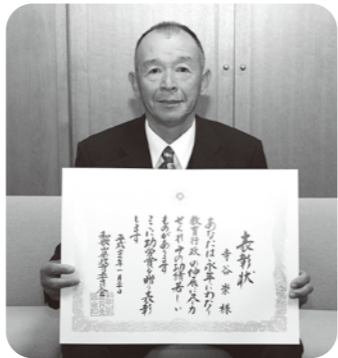 表彰状
寺谷 崇 様
あなたは永年にわたり
教育行政の伸展に尽力
せられその功績著しい
ものがあります
ここに功労賞を贈り表彰
します
平成
和歌山県教育委員会